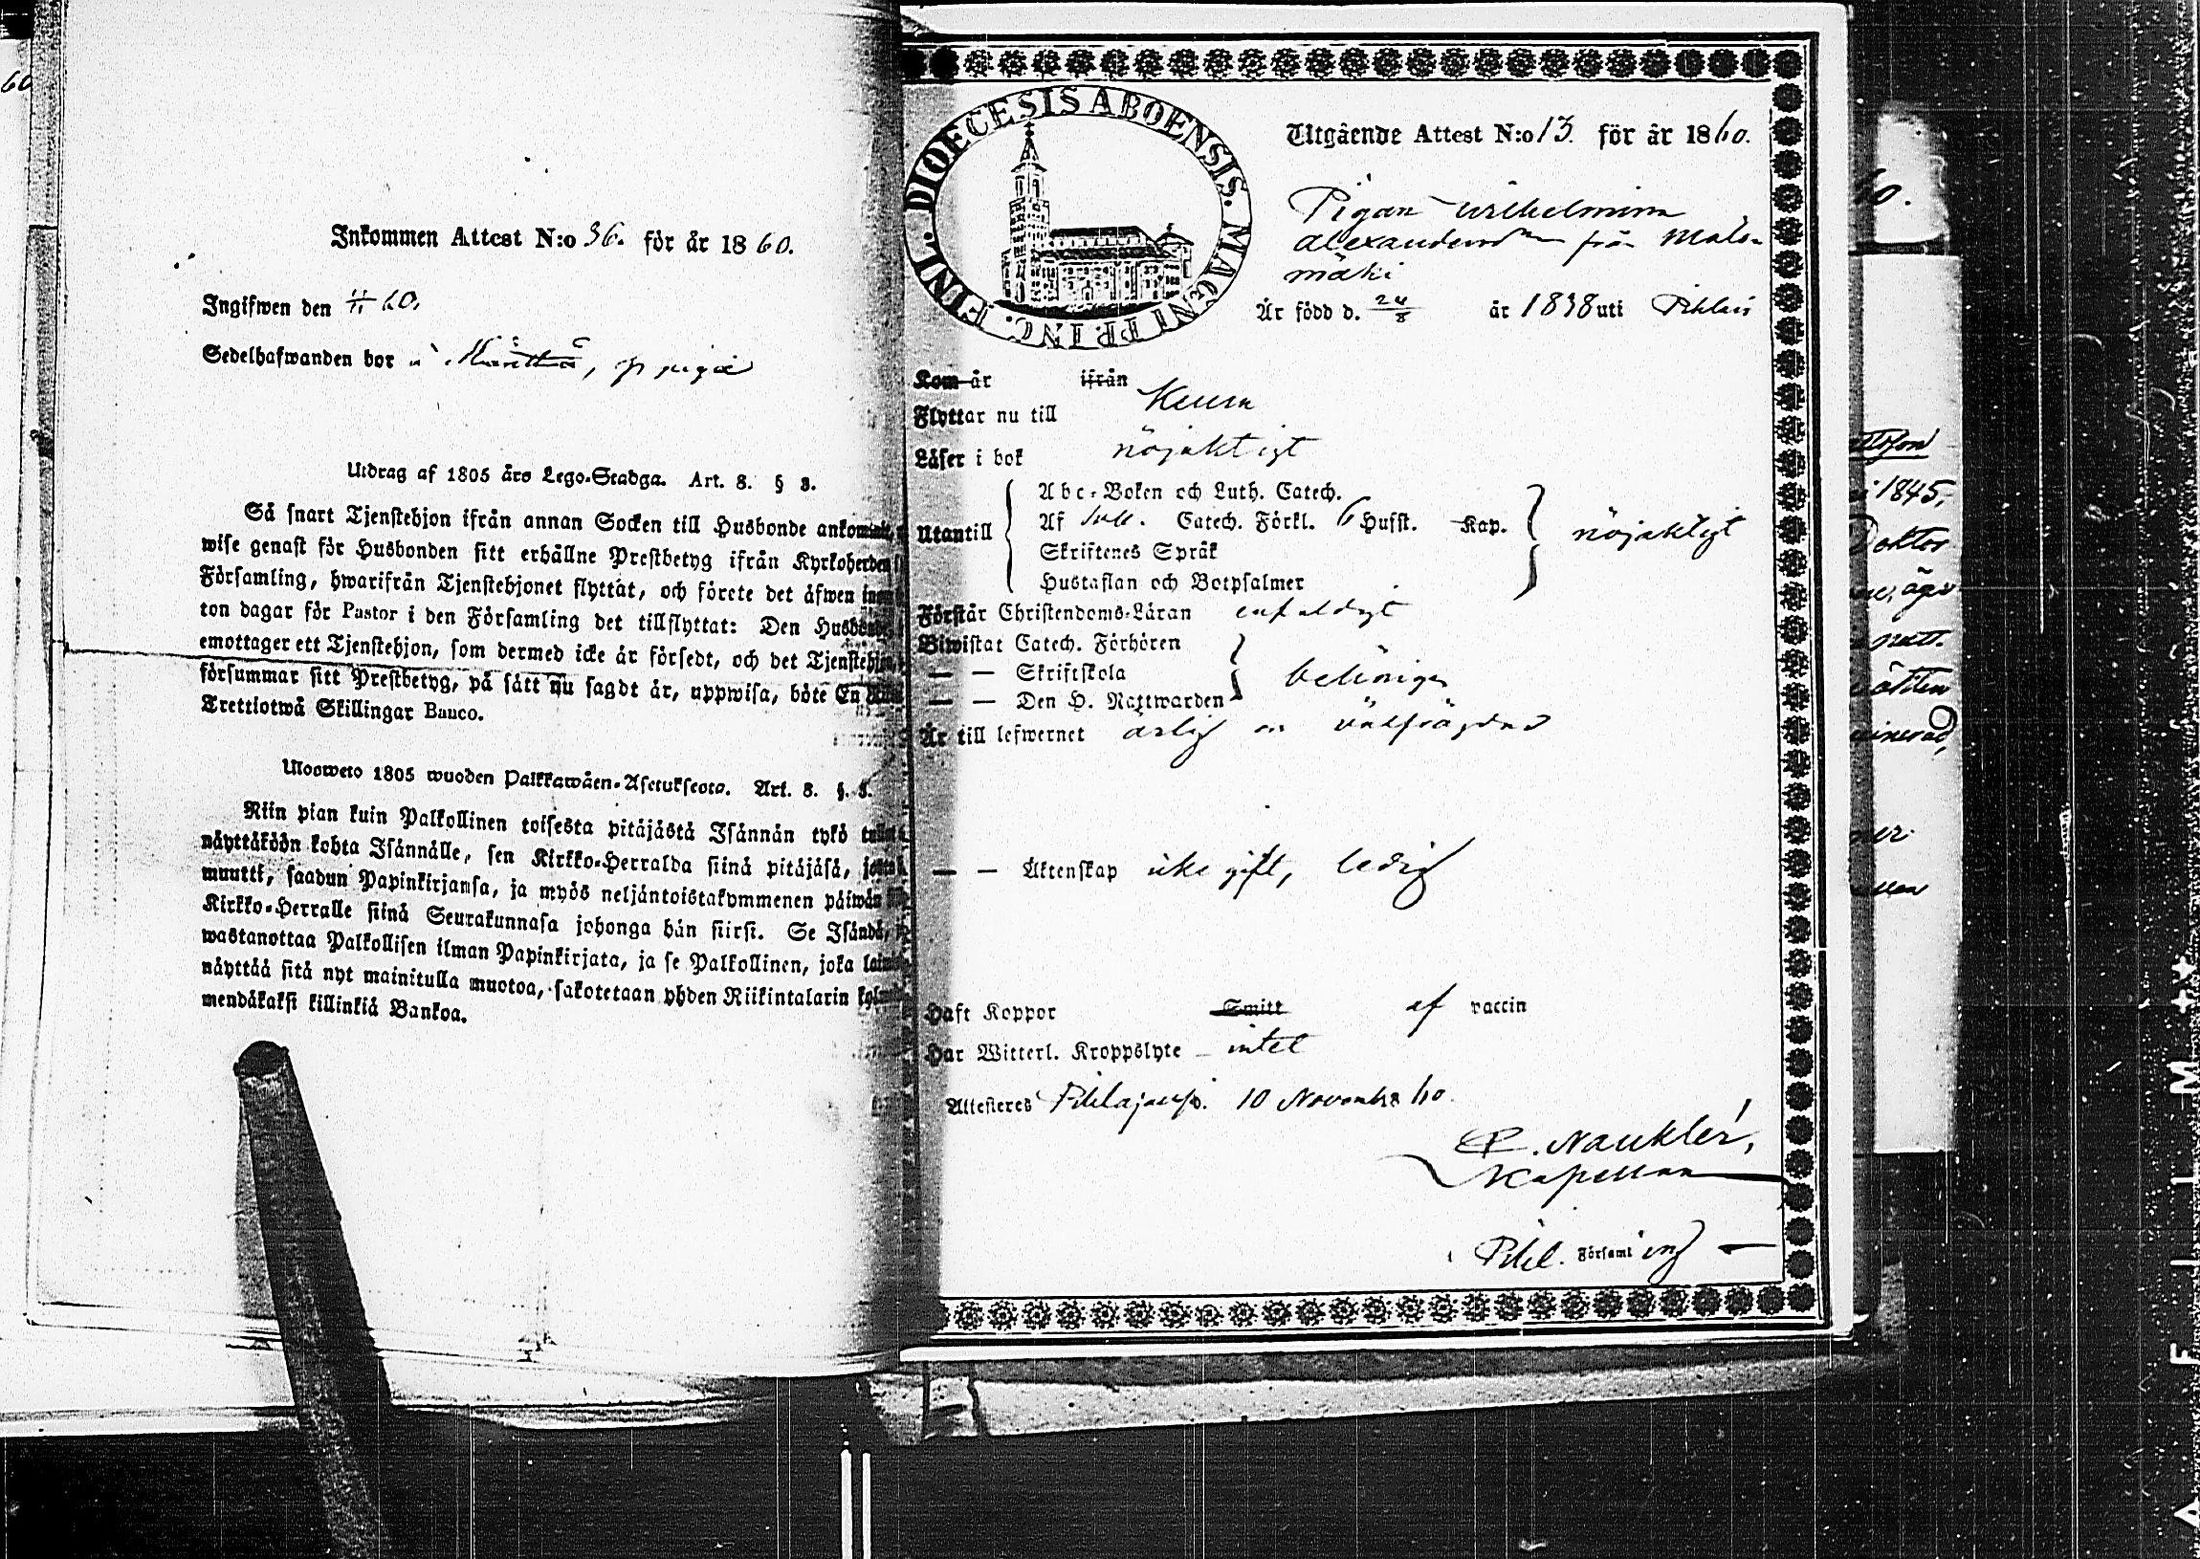 Inkommen Attest N:o 36. för år 1860.
Ingifwen den 11/11 60.
Sedelhafwanden bor
Utdrag af 1805 års Lego-Stadga. Art. 8. § 3.
Så snart Tjenstehjon ifrån annan Socken till Husbonde
wise genast för Husbonden sitt erhållne Prestbetyg ifrån Kyrkoherden
Församling, hwarifrån Tjenstehjonet flyttat, och förete det äfwen
ton dagar för Pastor i den Församling det tillflyttat: Den
emottager ett Tjenstehjon, som dermed icke är försedt, och det
försummar sitt Prestbetyg, på sätt nu sagdt är, uppwisa, böte En
Trettiotwå Skillingar Banco.
Ulosweto 1805 wuoden Palkkawäen-Asetuksesta. Art. 8. §. 3.
Niin pian kuin Palkollinen toisesta pitäjästä Isännän tykö
näyttäköön kohta Isännälle, sen Kirkko-Herralda siinä pitäjäsä,
muutti, saadun Papinkirjansa, ja myös neljäntoistakymmenen päiwän
Kirkko-Herralle siinä Seurakunnasa johonga hän siirsi. Se Isändä,
wastanottaa Palkollisen ilman Papinkirjata, ja se Palkollinen, joka
näyttää sitä nyt mainitulla muotoa, sakotetaan yhden Riikintalarin
mendäkaksi killinkiä Bankoa.
FINL. DIOECESIS ABOENSIS. MAGNI PRINC.
Utgående Attest N:o 13. för år 1860.
Pigan Wilhelmina
från
mäki
Är född d. 24/8 år 1838 uti
Kom år ifrån
Flyttar nu till Keuru
Läser i bok nöjaktigt
Abc-Boken och Luth. Catech.
Utantill Af Catech. Förkl. 6 Hufst. Kap. nöjaktigt
Skriftenes Språk
Hustaflan och Botpsalmer
Förstår Christendoms-Läran enfaldigt
Biwistat Catech. Förhören
— — Skriftskola behörigen
— — Den H. Nattwarden
Är till lefwernet ärlig och välfrägdad
— — Äktenskap icke gift, ledig
Haft Koppor Smitt af vaccin
Har Witterl. Kroppslyte intet
Attesteras 10 November 60.
Nauklér,
Kapellan
Pihl. Församling
1845,
Doktor